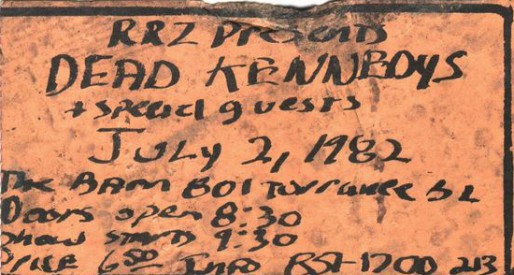 RRZ Presents
DEAD KENNEDYS
+ special guests
July 2, 1982
The BARN 801 Torrance BL
Doors open 8:30
Show starts 9:30
Price 6.50 Info 857-1700 213